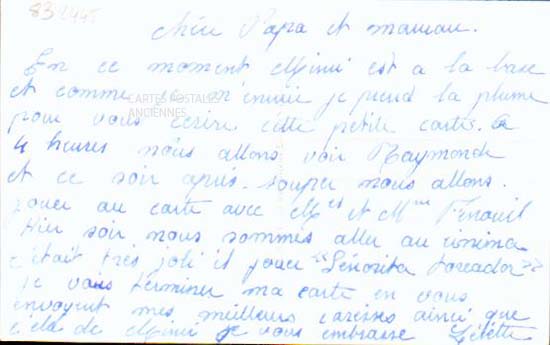 832445
Chère Papa et maman.
En ce moment Mimi est a la base
et comme je m'ennuie je prend la plume
CARTES POSTALES
ANCIENNES
pour vous écrire cette petite carte. a
4 heures nous allons voir Raymonde
et ce soir après-souper nous allons
jouer au carte avec Mr et Mme
Hier soir nous sommes allée au cinéma
c'était très joli il jouer "Señorita toreador"
je vais terminer ma carte en vous
envoyent mes meilleurs caresses ainsi que
celle de Mimi je vous embrasse